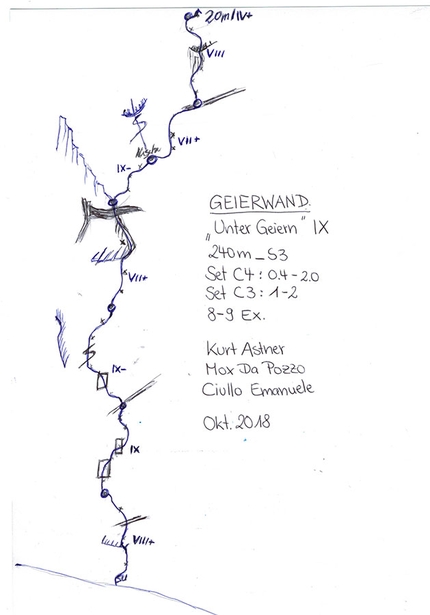 20m/IV+
VIII
VII+
Nische
IX-
VII+
IX-
IX
VIII+
SU
GEIERWAND.
„Unter Geiern" IX
240m_S3
Set C4: 0.4-2.0
Set C3: 1-2
8-9 Ex.
Kurt Astner
Mox Da Pozzo
Ciullo Emanuele
Okt. 2018